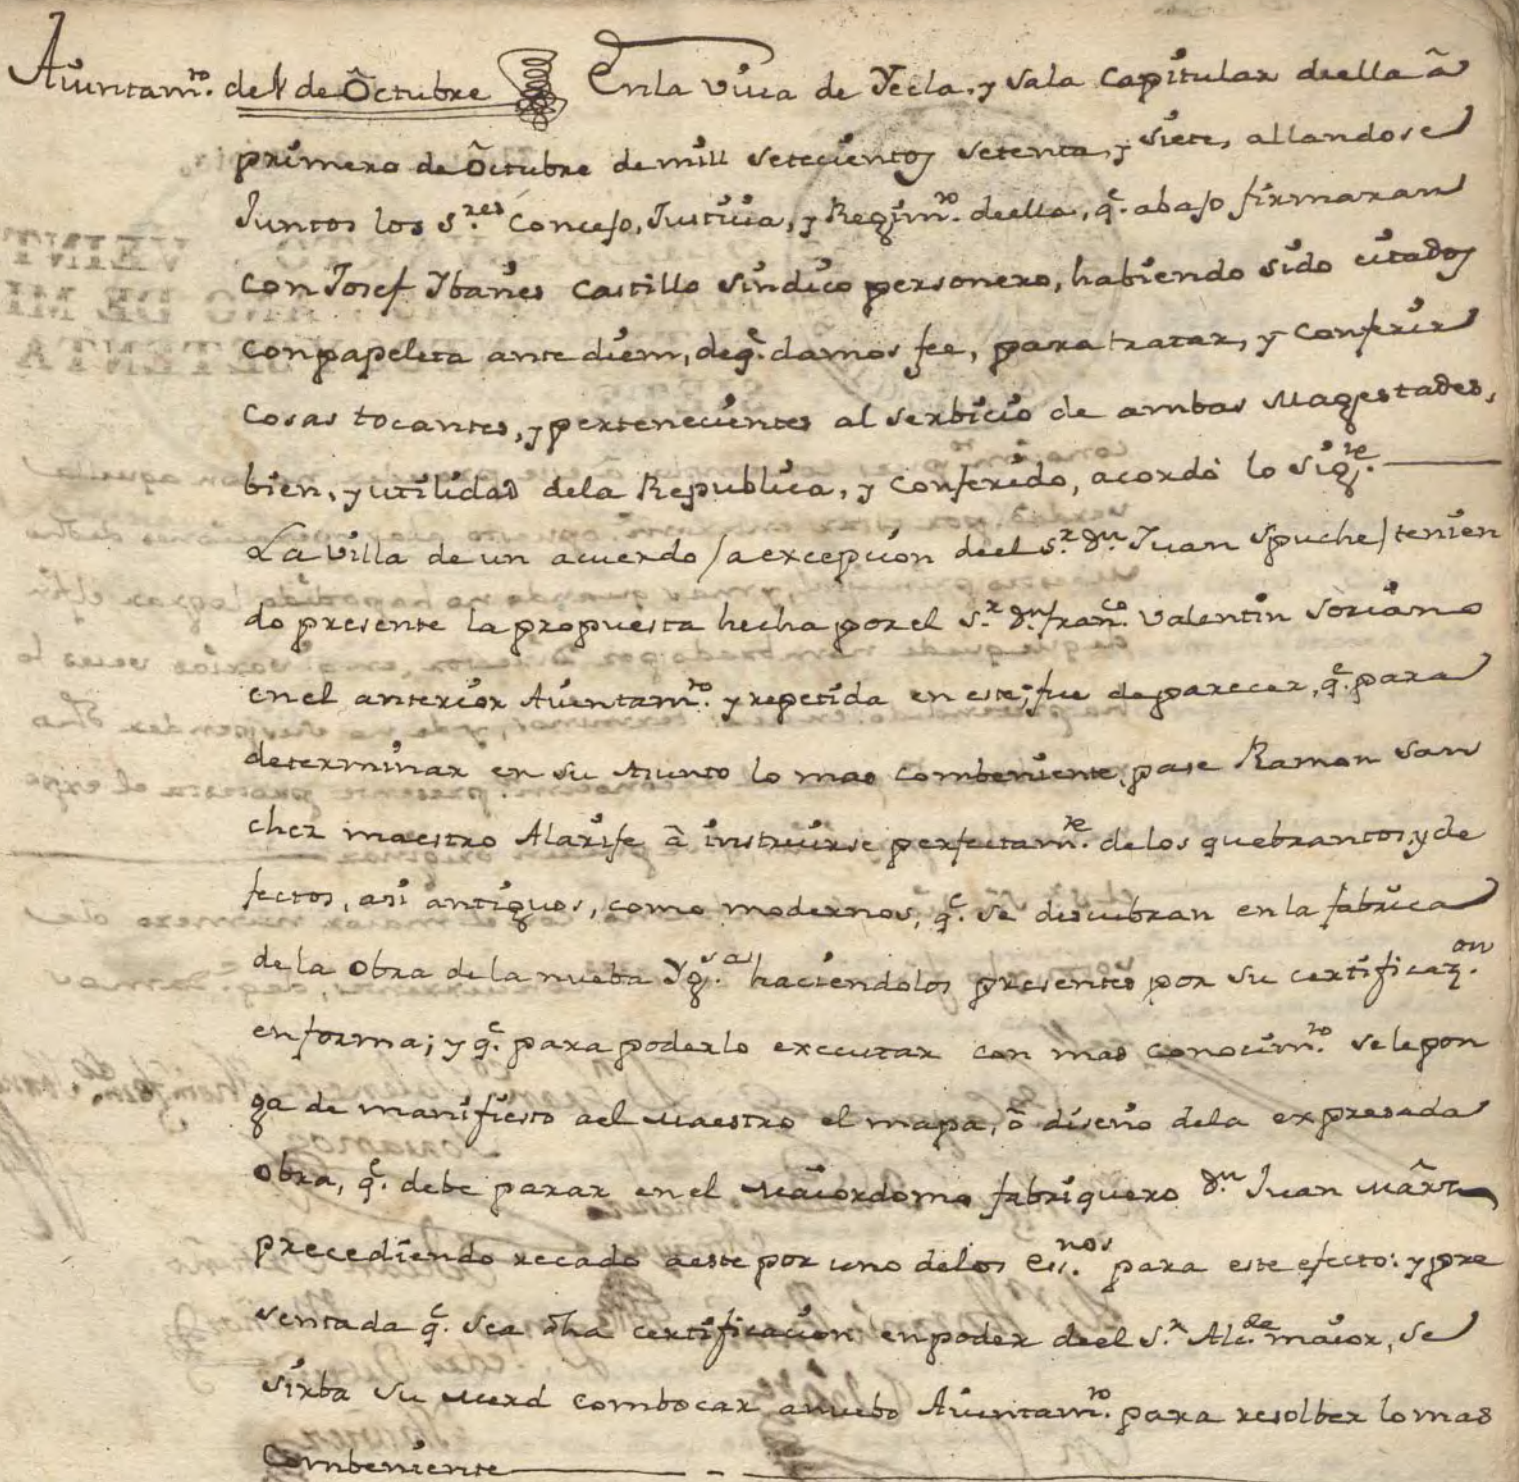 Aiuntam.to de 1 de Octubre En la Villa de Yecla, y Sala Capitular de ella â
primero de Octubre de mill setecientos setenta, y siete, allandose
Juntos los S.res Concejo, Justicia, y Regim.to de ella, q.e abajo firmaran
con Josef Ybañes Castillo Sindico personero, habiendo sido citados
con papeleta ante diem, de q.e damos fee, para tratar, y conferir
cosas tocantes, y pertenecientes al serbicio de ambas Magestades,
bien, y utilidad de la Republica, y conferido, acordò lo sig.te
La Villa de un acuerdo (a excepcion de el S.r d.n Juan Spuche) tenien
do presente la propuesta hecha por el S.r d.n Fran.co Valentin Soriano
en el anterior Aiuntam.to y repetida en este; fue de parecer, q.e para
determinar en su Asunto lo mas combeniente, pase Ramon San
chez maestro Alarife â instruirse perfectam.te de los quebrantos, y de
fectos, asi antiguos, como modernos, q.e se descubran en la fabrica
de la Obra de la nueba Yg.sa haciendolos presentes por su certificaz.on
en forma; y q.e para poderlo executar con mas conocim.to se le pon
ga de manifiesto a el Maestro el mapa, ô diseño de la expresada
obra, q.e debe parar en el Maiordomo fabriquero d.n Juan Marz
precediendo recado a este por uno de los ess.nos para este efecto: y pre
sentada q.e sea dha certificacion en poder de el S.r Alc.de maior, se
sirba su Merd combocar a nuebo Aiuntam.to para resolber lo mas
Combeniente